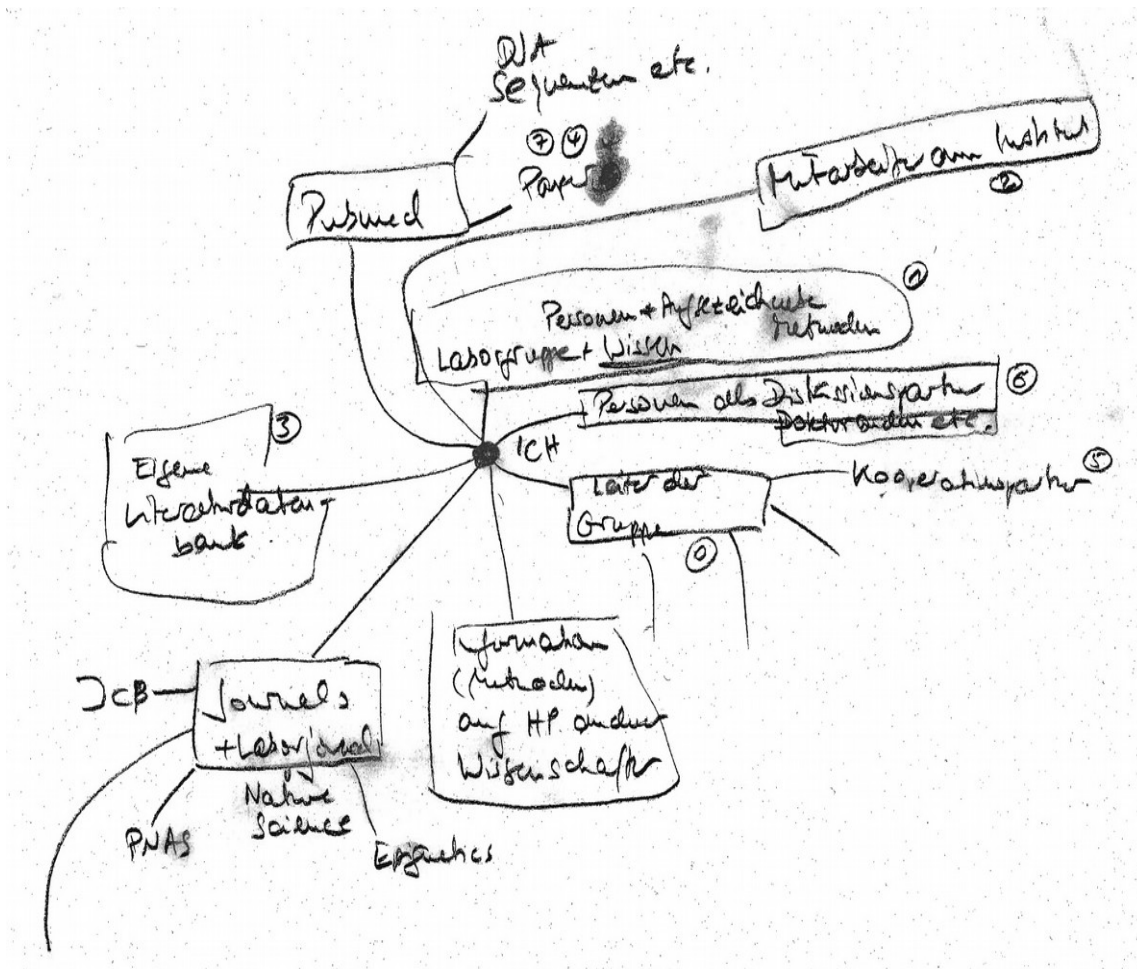 DNA
Sequenzen etc.
⑦ ④
Paper
Pubmed
Mitarbeiter am Institut
②
①
Personen + Aufgezeichnete
Methoden
Laborgruppe + Wissen
Personen als Diskussionspartner
⑥
Doktoranden etc.
ICH
③
Eigene
Literaturdaten-
bank
Leiter der
Gruppe
⓪
Kooperationspartner
⑤
Information
(Methoden)
auf HP. anderer
Wissenschaftler
JCB
Journals
+ Laborjournal
Nature
Science
PNAS
Epigenetics